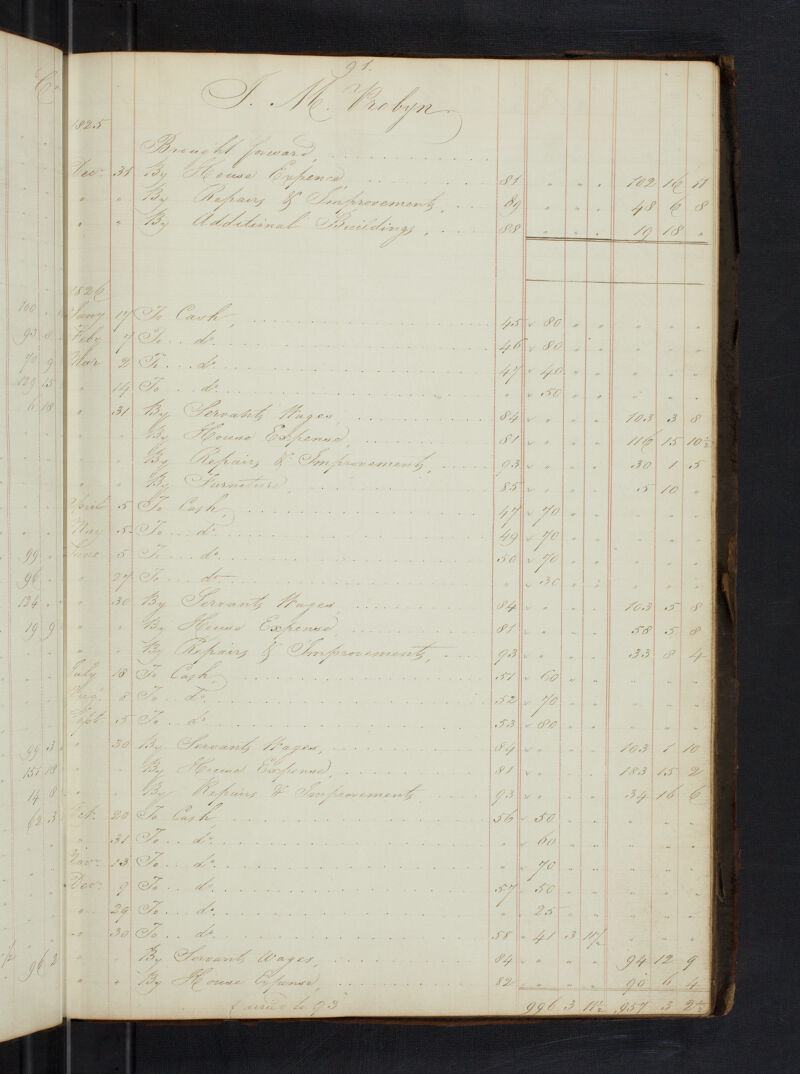 91.
J. M. Probyn
1825
Brought forward
Decr. 31 By House Expence 81 102 16 11
" " By Repairs & Improvements, 89 48 6 8
" " By Additional Buildings, 88 19 18 "
1826
Jany 17 To Cash, 45 80
Feby 7 To do. 46 80
Mar 2 To do. 47 40
" 14 To do. " 50
" 31 By Servants Wages, 84 103 3 8
" " By House Expense, 81 116 15 10½
" " By Repairs & Improvements, 93 30 1 5
" " By Furniture, 85 5 10 "
April 5 To Cash, 47 70
May 5 To do. 49 70
June 5 To do. 50 70
" 27 To do. " 30
" 30 By Servants Wages, 84 103 5 8
" " By House Expense 81 58 5 8
" " By Repairs & Improvements, 93 33 8 4
July 18 To Cash, 51 60
Augt. 8 To do. 52 70
Sept. 5 To do. 53 80
" 30 By Servants Wages, 84 103 1 10
" " By House Expense, 81 183 15 2
" " By Repairs & Improvements 93 34 16 6
Oct. 20 To Cash 56 50
" 31 To do. " 60
Novr 13 To do. " 70
Decr 9 To do. 57 50
" 29 To do. " 25
" 30 To do. 58 41 3 11½
" " By Servants Wages, 84 94 12 9
" " By House Expense, 82 90 6 4
Carried to 93 996 3 11½ 937 3 2½
Cr
100
93
70 9
129 15
6 18
99
96
124
19 9
99 3
151 18
14 8
62 3
96 2